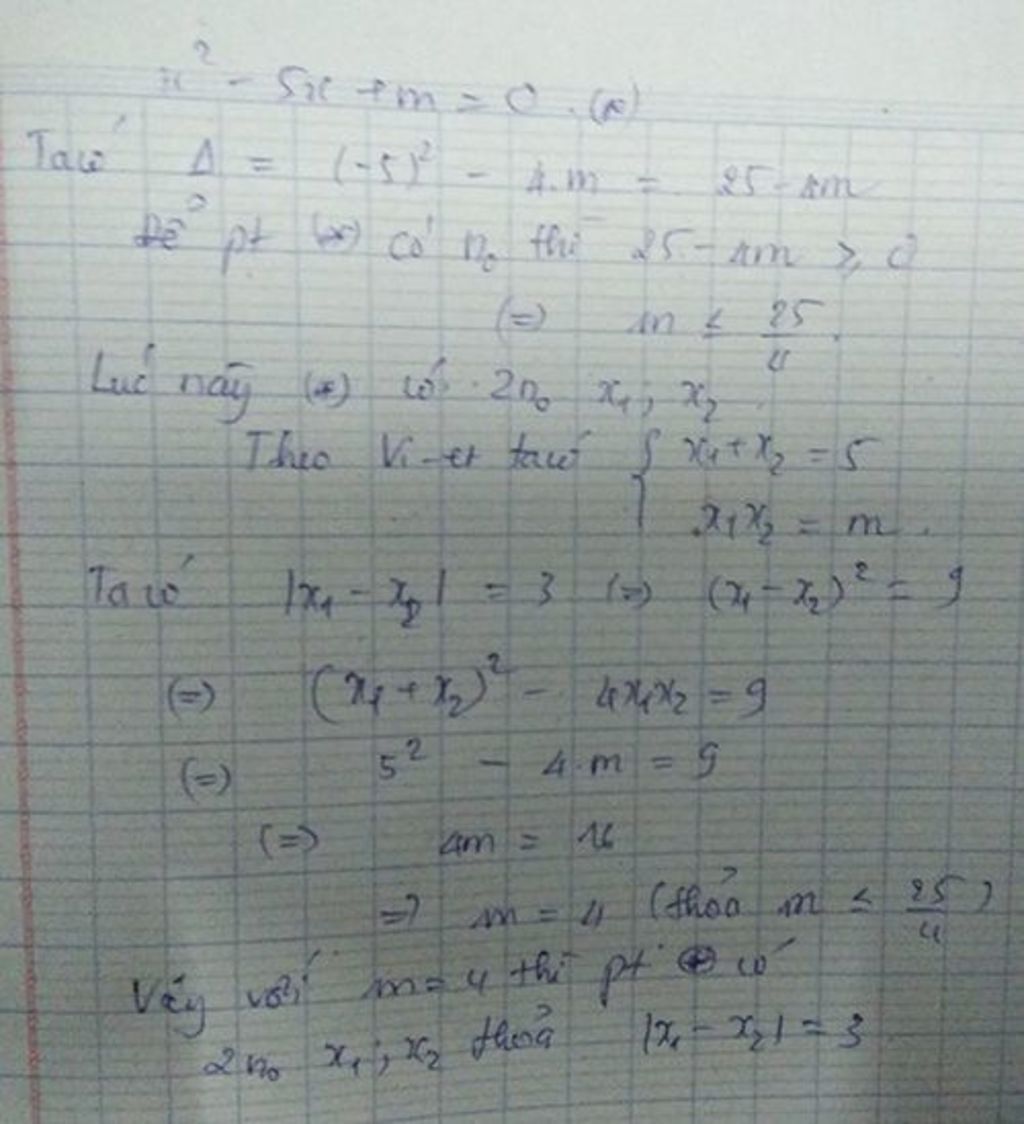 x² - 5x + m = 0. (*)
Ta có Δ = (-5)² - 4.m = 25 - 4m
Để pt (*) có n₀ thì 25 - 4m ≥ 0
(=) m ≤ 25/4.
Lúc này (*) có 2n₀ x₁; x₂.
Theo Vi-et ta có { x₁ + x₂ = 5
x₁x₂ = m.
Ta có |x₁ - x₂| = 3 (=) (x₁ - x₂)² = 9
(=) (x₁ + x₂)² - 4x₁x₂ = 9
(=) 5² - 4.m = 9
(=) 4m = 16
=) m = 4 (thỏa m ≤ 25/4)
Vậy với m = 4 thì pt (*) có
2n₀ x₁; x₂ thoả |x₁ - x₂| = 3